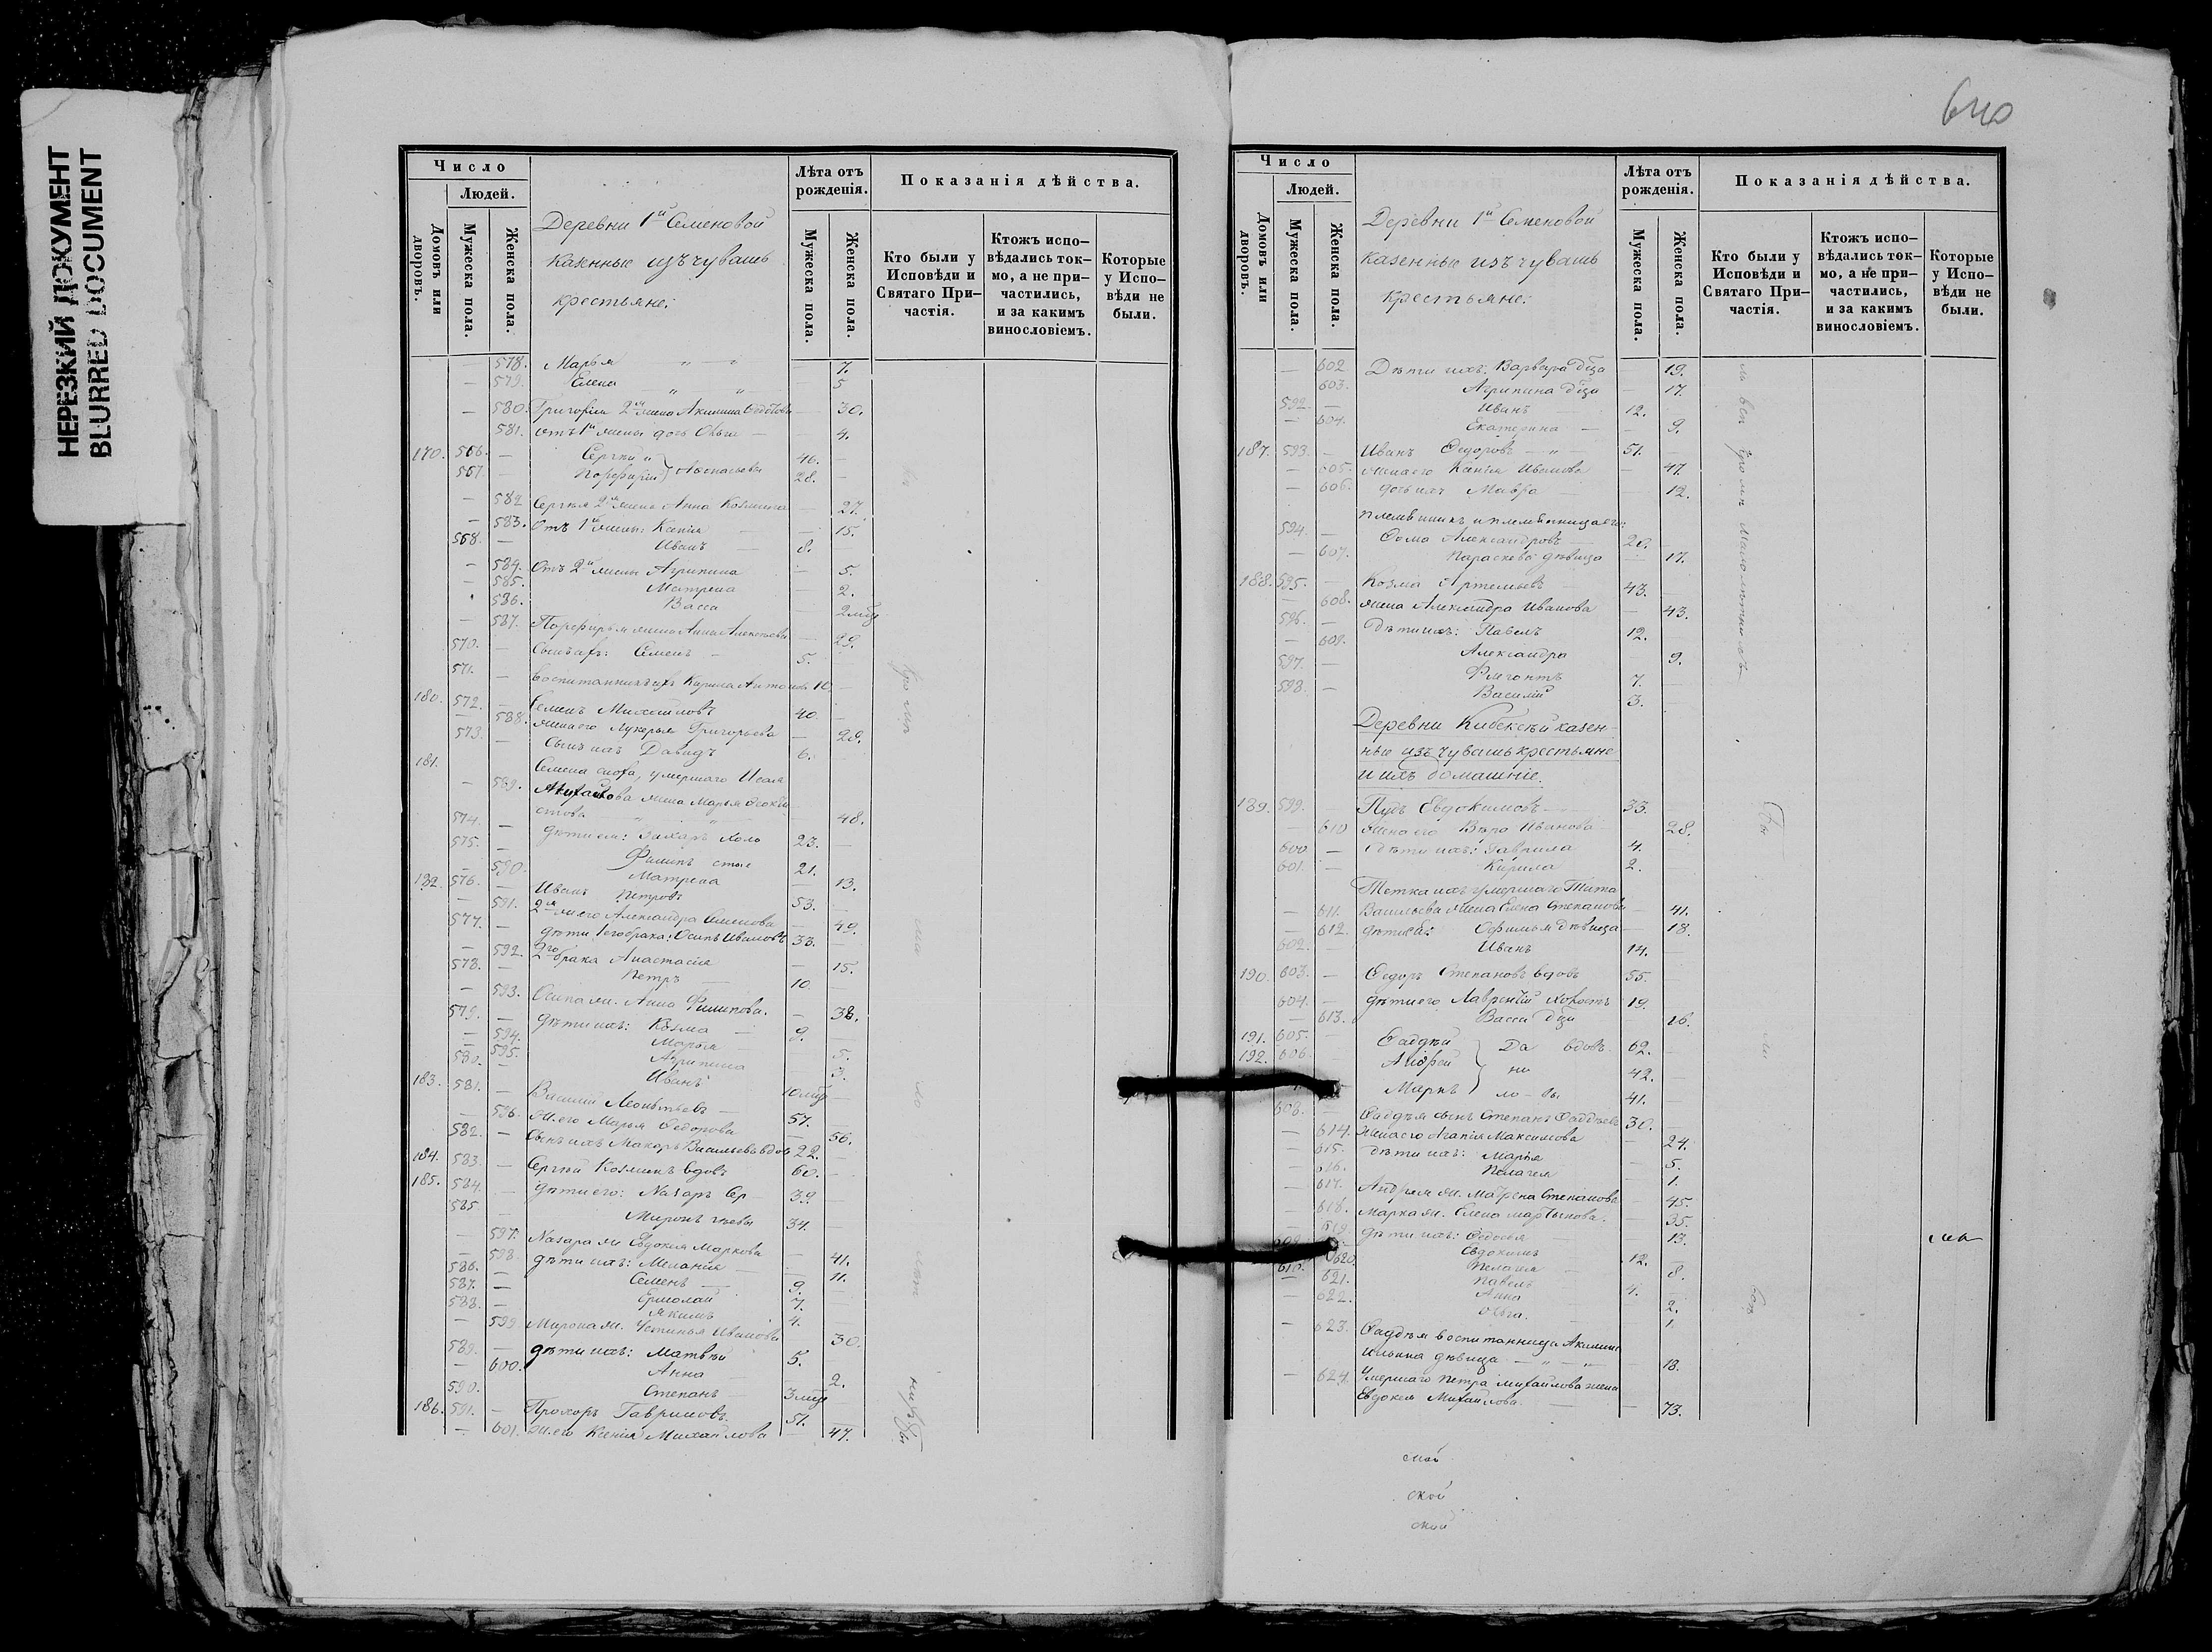 НЕРЕЗКИЙ ДОКУМЕНТ
BLURRED DOCUMENT
Число
Людей.
Домовъ или дворовъ.
Мужеска пола.
Женска пола.
Деревни 1й Семеновой
казенные изъ чувашъ
крестьяне:
Лѣта отъ рожденія.
Мужеска пола.
Женска пола.
Показанія дѣйства.
Кто были у Исповѣди и Святаго При-частія.
Ктожъ испо-вѣдались ток-мо, а не при-частились, и за какимъ винословіемъ.
Которые у Испо-вѣди не были.
— 578. Марья " " — 7.
— 579. Елена " " 5
— 580. Григорія 2я жена Акилина — 30.
581. отъ 1й жены дочь Ольга — 4.
170. 566. — Сергѣй " 46. —
567. — Порфирій Афанасьевы 28. —
— 582 Сергѣя 2я жена Анна Козмина — 27.
— 583. Отъ 1й жены: Ксенія — 15.
568. — Иванъ — 8.
— 584. Отъ 2й жены Агрипина — 5.
— 585. Матрена — 2.
586. Васса — 2 мца
— 587. Порфирья жена Анна Алексѣева — 29.
570. — Сынъ ихъ: Семенъ — 5.
571. — воспитанникъ ихъ Кирила Антоновъ 10. —
180. 572. — Семенъ Михайловъ 40. —
— 588. жена его Лукерья Григорьева — 28.
573. — Сынъ ихъ Давидъ 6. —
181. Семена сноха, умершаго Исаія
— 589. Михайлова жена Марья Феокти
стова — " — " — 48.
574. — дѣти ея: Захаръ холо 23. —
575. — Филипъ стые 21.
— 590. Матрена — 13.
182. 576. — Иванъ Петровъ 53. —
— 591. 2я ж. его Александра Семенова — 49.
577. — дѣти 1 его брака: Осипъ Ивановъ 33. —
— 592. 2го брака Анастасія — 15.
578. — Петръ — 10. —
— 593. Осипа ж. Анна Филипова. — 38.
579. — дѣти ихъ: Козма — 9. —
— 594. Марья — 5.
— 595. Агрипина 3.
580. — Иванъ 10 мцъ —
183. 581. — Василій Леонтьевъ — 57. —
— 596. ж. его Марья Федорова — 56.
582. — Сынъ ихъ Макаръ Васильевъ вдов 22. —
184. 583. — Сергѣй Козминъ вдовъ 60. —
185. 584. — дѣти его: Назаръ Сер — 39.
585 — Миронъ гѣевы 34. —
— 597. Назара ж. Евдокея Маркова — 41.
— 598. дѣти ихъ: Меланія — 11.
586. — Семенъ — 9. —
587. — Ермолай 7. —
588. — Якимъ 4. —
— 599 Мирона ж. Устинья Иванова 30.
589. — дѣти ихъ: Матвѣй 5. —
— 600. Анна — 2.
590. Степанъ — 3 мца
186. 591. — Прохоръ Гавриловъ. 51. —
— 601. ж. его Ксенія Михайлова — 47.
640
Число
Людей.
Домовъ или дворовъ.
Мужеска пола.
Женска пола.
Деревни 1й Семеновой
казенные изъ чувашъ
крестьяне:
Лѣта отъ рожденія.
Мужеска пола.
Женска пола.
Показанія дѣйства.
Кто были у Исповѣди и Святаго При-частія.
Ктожъ испо-вѣдались ток-мо, а не при-частились, и за какимъ винословіемъ.
Которые у Испо-вѣди не были.
— 602 Дѣти ихъ: Варвара дца — 19.
603. Агрипина дца — 17.
592 — Иванъ 12. —
— 604. Екатерина — — 9.
187. 593. — Иванъ Федоровъ — " — 51. —
— 605. жена его Ксенія Иванова — 47.
— 606. дочь ихъ Мавра — 12.
племянникъ и племянница его:
594. — Фома Александровъ — 20. —
— 607. Параскева дѣвица — 17.
188. 595. — Козма Артемьевъ — 43. —
— 608. жена Александра Иванова — 43.
596. — дѣти ихъ: Павелъ 12. —
— 609. Александра — 9.
597. — Флегонтъ 7.
598. — Василій 3. —
Деревни Кибексѣй казен-
ные изъ чувашъ крестьяне
и ихъ домашніе.
189. 599. Пудъ Евдокимовъ — 33. —
— 610 жена его Вѣра Иванова — 28.
600 — дѣти ихъ: Гаврила 4. —
601. — Кирила 2. —
Тетка ихъ умершаго Тита
— 611. Васильева жена Елена Степанова — 41.
— 612. дѣти ея: Офимья дѣвица — 18.
602. — Иванъ 14. —
190. 603. — Федоръ Степановъ вдовъ 55. —
604. — дѣти его Лаврентій холостъ 19. —
— 613. Васса дца — 16.
191. 605. — Фаддѣй Да вдовъ. 62. —
192. 606. Андрей ни 42. —
Маркъ ло-вы 41. —
608. — Фаддѣя сынъ Степанъ Фаддѣевъ 30. —
— 614. жена его Агапія Максимова — 24.
— 615. дѣти ихъ: Марья — 5.
— 616. Пелагея — 1.
— 617. Андрея ж. Матрена Степанова — 45.
— 618. Марка ж. Елена Мартынова. — 35.
— 619 дѣти ихъ: Федосья — 13.
609. Евдокимъ 12. —
620. Пелагея — 8.
610. — Павелъ 4. —
621. Анна — 2.
— 622. Ольга. 1.
— 623. Фаддѣя воспитанница Акилина
Ильина дѣвица — " — " — 18.
— 624. Умершаго Петра Михайлова жена
Евдокея Михайлова. — — 73.